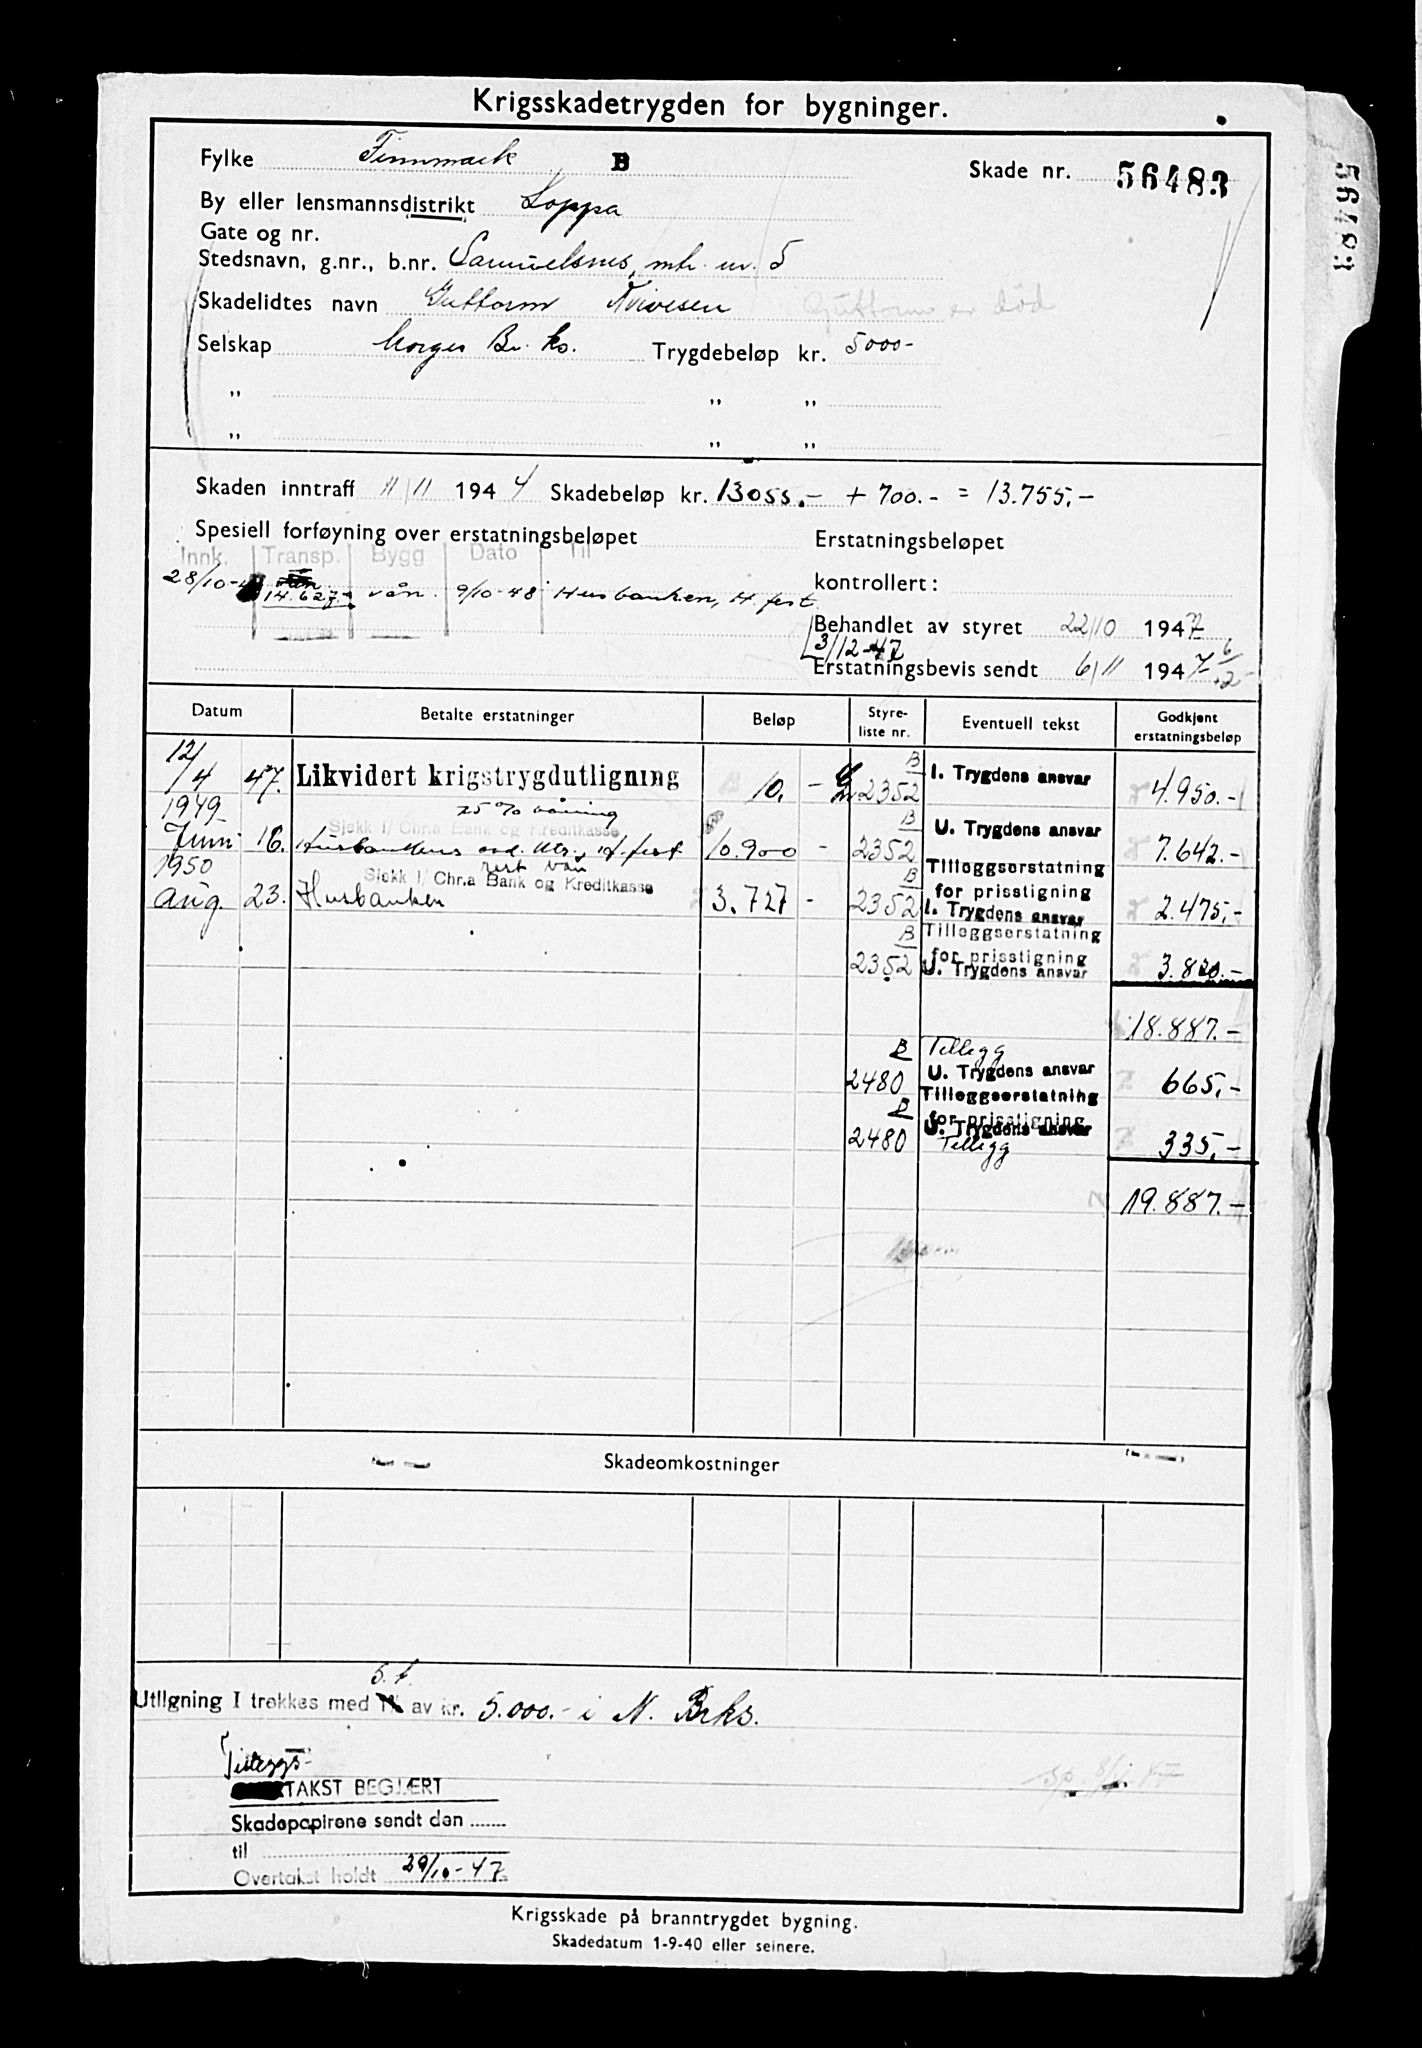 Krigsskadetrygden for bygninger.
Fylke Finnmark B Skade nr. 56483
56483
By eller lensmannsdistrikt Loppa
Gate og nr.
Stedsnavn, g.nr., b.nr. Samuelsnes, mtr. nr. 5
Skadelidtes navn Guttorm Guttorm er død
Selskap Norges Br. ks. Trygdebeløp kr. 5000-
„ „ „
„ „ „
Skaden inntraff 11/11 1944 Skadebeløp kr. 13055.- + 700.- = 13.755,-
Spesiell forføyning over erstatningsbeløpet Erstatningsbeløpet
Innk. Transp. Bygg Dato Til
kontrollert:
28/10-48 14.627.- vån. 9/10-48 Husbanken, H. fest
Behandlet av styret 22/10 1947
3/12-47
Erstatningsbevis sendt 6/11 1947 6/12
Datum Betalte erstatninger Beløp Styre-liste nr. Eventuell tekst Godkjent erstatningsbeløp
12/4 47. Likvidert krigstrygdutligning 10.- B 2352 I. Trygdens ansvar 4.950.-
1949 25% våning
Sjekk i/ Chr.a Bank og Kreditkasse
Juni 16. Husbankens avd. H. fest 10.900 - B 2352 U. Trygdens ansvar 7.642.-
1950 rest vån
Sjekk i/ Chr.a Bank og Kreditkasse
Aug. 23. Husbanken 3.727 - B 2352 Tilleggserstatning for prisstigning I. Trygdens ansvar 2.475,-
B 2352 Tilleggserstatning for prisstigning U. Trygdens ansvar 3.820.-
18.887.-
B 2480 Tillegg U. Trygdens ansvar 665,-
B 2480 Tilleggserstatning for prisstigning U. Trygdens ansvar Tillegg 335,-
19.887.-
Skadeomkostninger
5.t.
Utligning I trekkes med av kr. 5.000.- i N. Brks.
Tilleggs-
TAKST BEGJÆRT
Skadepapirene sendt den
til
Overtakst holdt 29/10-47
Krigsskade på branntrygdet bygning.
Skadedatum 1-9-40 eller seinere.